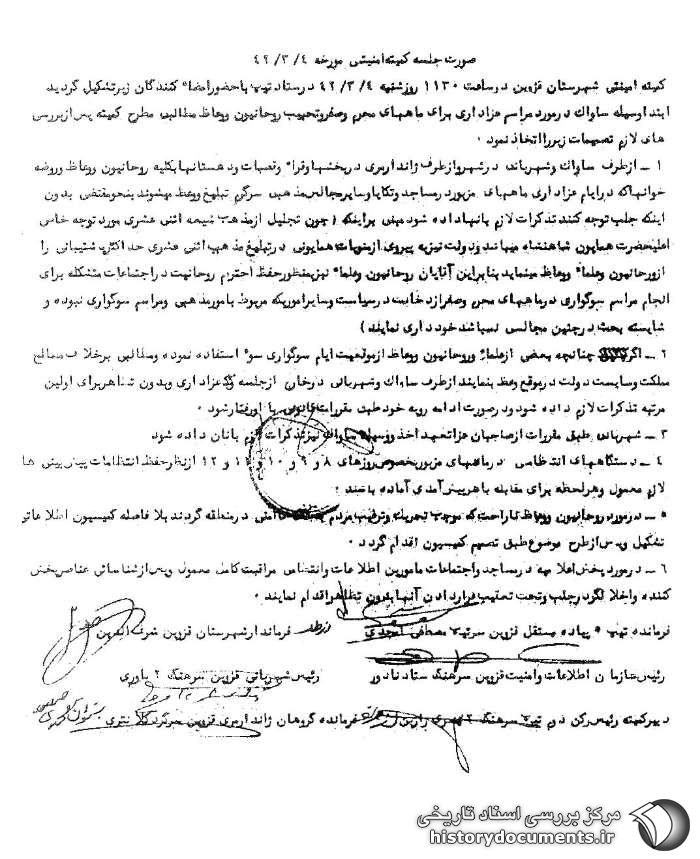 صورت جلسه کمیته امنیتی مورخه ۴ /۳ /۴۲
کمیته امنیتی شهرستان قزوین در ساعت ۱۱۳۰ روز شنبه ۴ /۳ /۴۲ در ستاد تیپ با حضور امضاء کنندگان زیر تشکیل گردید
ابتدا وسیله ساواک در مورد مراسم عزاداری برای ماههای محرم و صفر و تحبیب روحانیون و وعاظ مطالبی مطرح کمیته پس از بررسی
های لازم تصمیمات زیر را اتخاذ نمود ۰
۱ ــ از طرف ساواک و شهربانی در شهر و از طرف ژاندارمری در بخشها و قراء و قصبات و دهستانها بکلیه روحانیون و وعاظ و روضه
خوانها که در ایام عزاداری ماههای مزبور در مساجد و تکایا و سایر مجالس مذهبی سرگرم تبلیغ و وعظ میشوند بنحو مقتضی بدون
اینکه جلب توجه کنند تذکرات لازم بانها داده شود مبنی بر اینکه ( چون تجلیل از مذهب شیعه اثنی عشری مورد توجه خاص
اعلیحضرت همایون شاهنشاه میباشد و دولت نیز به پیروی از منویات همایونی در تبلیغ مذهب اثنی عشری حداکثر پشتیبانی را
از روحانیون و علماء و وعاظ مینماید بنابراین آقایان روحانیون و علماء نیز بمنظور حفظ احترام روحانیت در اجتماعات متشکله برای
انجام مراسم سوگواری در ماههای محرم و صفر از دخالت در سیاست و سایر اموریکه مربوط بامور مذهبی و مراسم سوگواری نبوده و
شایسته بحث در چنین مجالس نمیباشد خودداری نمایند )
۲ ــ اگر چنانچه بعضی از علماء و روحانیون و وعاظ از موقعیت ایام سوگواری سوء استفاده نموده و مطالبی برخلاف مصالح
مملکت و سیاست دولت در موقع وعظ بنمایند از طرف ساواک و شهربانی در خارج از جلسه عزاداری و بدون تظاهر برای اولین
مرتبه تذکرات لازم داده شود و در صورت ادامه رویه خود طبق مقررات قانونی با او رفتار شود ۰
۳ ــ شهربانی طبق مقررات از صاحبان عزا تعهد اخذ و وسیله ساواک نیز تذکرات لازم بانان داده شود
۴ ــ دستگاههای انتظامی در ماههای مزبور بخصوص روزهای ۸ و ۹ و ۱۰ و ۱۱ و ۱۲ از نظر حفظ انتظامات پیش بینی ها
لازم معمول و هر لحظه برای مقابله با هر پیش آمدی آماده باشند ۰
۵ ــ در مورد روحانیون و وعاظ ناراحت که موجب تحریک و ترغیب مردم در منطقه گردند بلافاصله کمیسیون اطلاعاتی
تشکیل و پس از طرح موضوع طبق تصمیم کمیسیون اقدام گردد ۰
۶ ــ در مورد پخش اعلامیه در مساجد و اجتماعات مامورین اطلاعات و انتظامی مراقبت کامل معمول و پس از شناسائی عناصر پخش
کننده و اخلالگر در جلب و تحت تعقیب قراردادن آنها بدون تظاهر اقدام نمایند ۰
فرمانده تیپ ۵ پیاده مستقل قزوین سرتیپ مصطفی امجدی فرماندار شهرستان قزوین شرف الدین
رئیس سازمان اطلاعات و امنیت قزوین سرهنگ ستاد نادور رئیس شهربانی قزوین سرهنگ ۲ یاوری
دبیر کمیته رئیس رکن دوم تیپ سرهنگ ۲ فرمانده گروهان ژاندارمری قزوین سرگرد کلانتری
مرکز بررسی اسناد تاریخی
historydocuments.ir